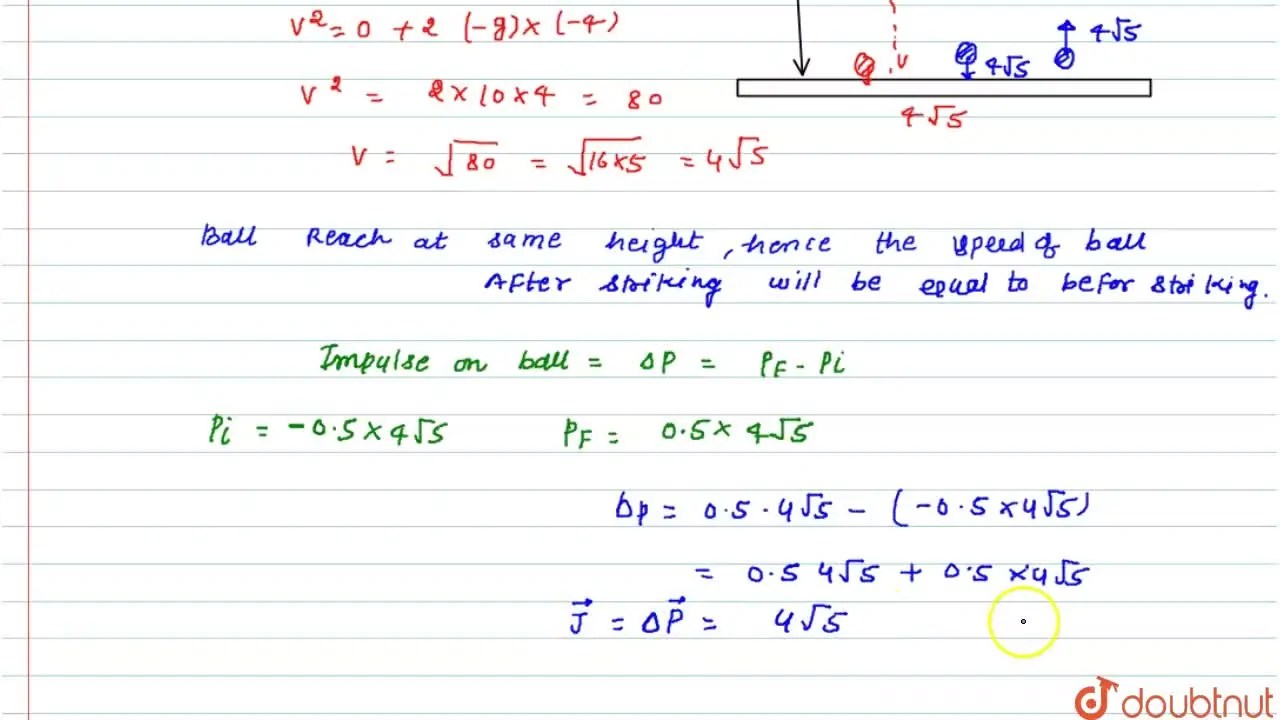 V² = 0 + 2 (-g) × (-4)
4√5
4√5
V
V² = 2 × 10 × 4 = 80
4√5
V = √80 = √16×5 = 4√5
Ball Reach at same height, hence the speed of ball
After striking will be equal to befor striking.
Impulse on ball = ΔP = PF - Pi
Pi = -0.5 × 4√5 PF = 0.5 × 4√5
Δp = 0.5 . 4√5 - (-0.5 × 4√5)
= 0.5 4√5 + 0.5 × 4√5
J⃗ = ΔP⃗ = 4√5
doubtnut